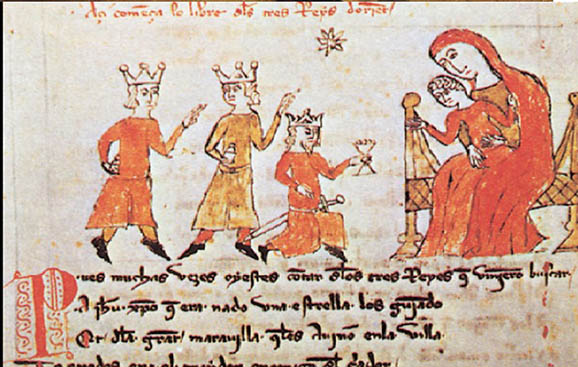 Açi comença lo libre dls tres Reys dorient
Pues muchas vezes oyestes cōtar dlos tres Reyes q̄ vinjerō buscar
A ihū xp̄o q̄ era nado vna estrella los guiando
Et dla grant marauilla qles Auino enla villa